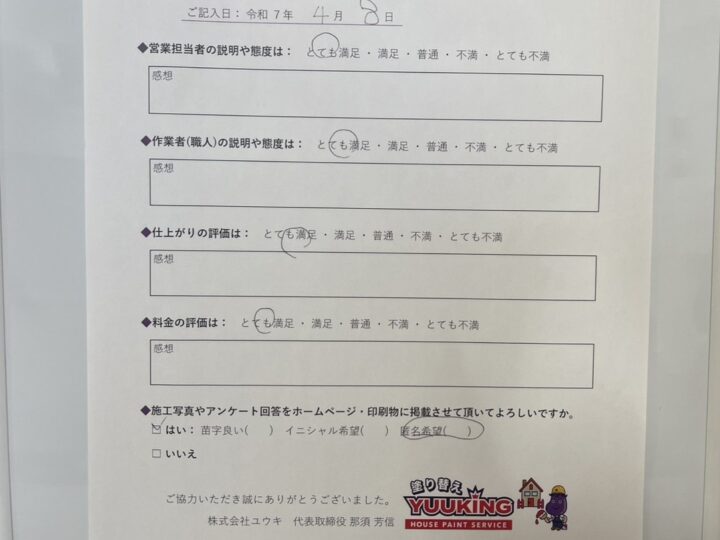 ご記入日：令和7年 4月 8日
◆営業担当者の説明や態度は： とても満足 ・ 満足 ・ 普通 ・ 不満 ・ とても不満
感想
◆作業者(職人)の説明や態度は： とても満足 ・ 満足 ・ 普通 ・ 不満 ・ とても不満
感想
◆仕上がりの評価は： とても満足 ・ 満足 ・ 普通 ・ 不満 ・ とても不満
感想
◆料金の評価は： とても満足 ・ 満足 ・ 普通 ・ 不満 ・ とても不満
感想
◆施工写真やアンケート回答をホームページ・印刷物に掲載させて頂いてよろしいですか。
☑ はい： 苗字良い( ) イニシャル希望( ) 匿名希望( )
□ いいえ
ご協力いただき誠にありがとうございました。
株式会社ユウキ 代表取締役 那須 芳信
塗り替え
YUUKING
HOUSE PAINT SERVICE